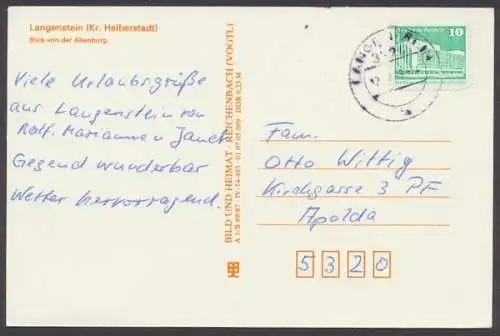 Langenstein (Kr. Halberstadt)
Blick von der Altenburg
Viele Urlaubsgrüße
aus Langenstein von
Rolf. Marianne u Janett
Gegend wunderbar
Wetter hervorragend.
BILD UND HEIMAT REICHENBACH (VOGTL)
10
Fam.
Otto Wittig
Kirchgasse 3 PF
Apolda
5320